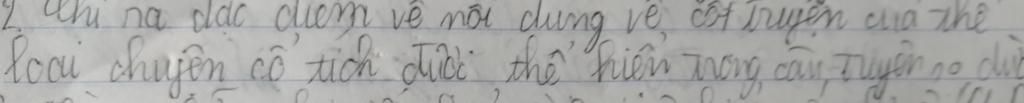 2. Chỉ ra đặc điểm về nội dung về cốt truyện của thể
loại chuyện cổ tích được thể hiện trong câu truyện